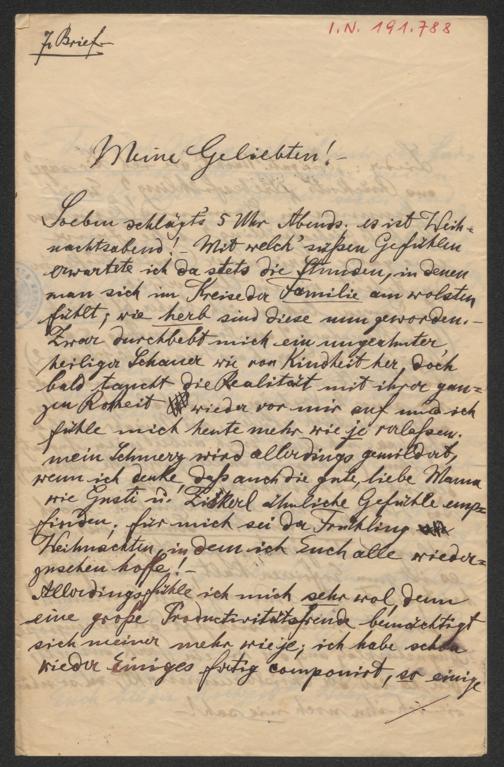 7. Brief.
I. N. 191.788
Meine Geliebten! –
Soeben schlägt's 5 Uhr Abends; es ist Weih=
nachtsabend! Mit welch' süßen Gefühlen
erwartete ich da stets die Stunden, in denen
man sich im Kreise der Familie am wolsten
fühlt; wie herb sind diese nun geworden. –
Zwar durchbebt mich ein ungeahnter
heiliger Schauer wie von Kindheit her, doch
bald taucht die Realität mit ihrer gan=
zen Roheit wieder vor mir auf und ich
fühle mich heute mehr wie je verlassen.
Mein Schmerz wird allerdings gemildert,
wenn ich denke, daß auch die gute, liebe Mama
wie Gusti u. ähnliche Gefühle emp=
finden; für mich sei der Frühling
Weihnachten, in dem ich Euch alle wieder=
zusehen hoffe! –
Allerdings fühle ich mich sehr wol denn
eine große Productivitätsfreude bemächtigt
sich meiner mehr wie je; ich habe schon
wieder Einiges fertig componirt, so einige